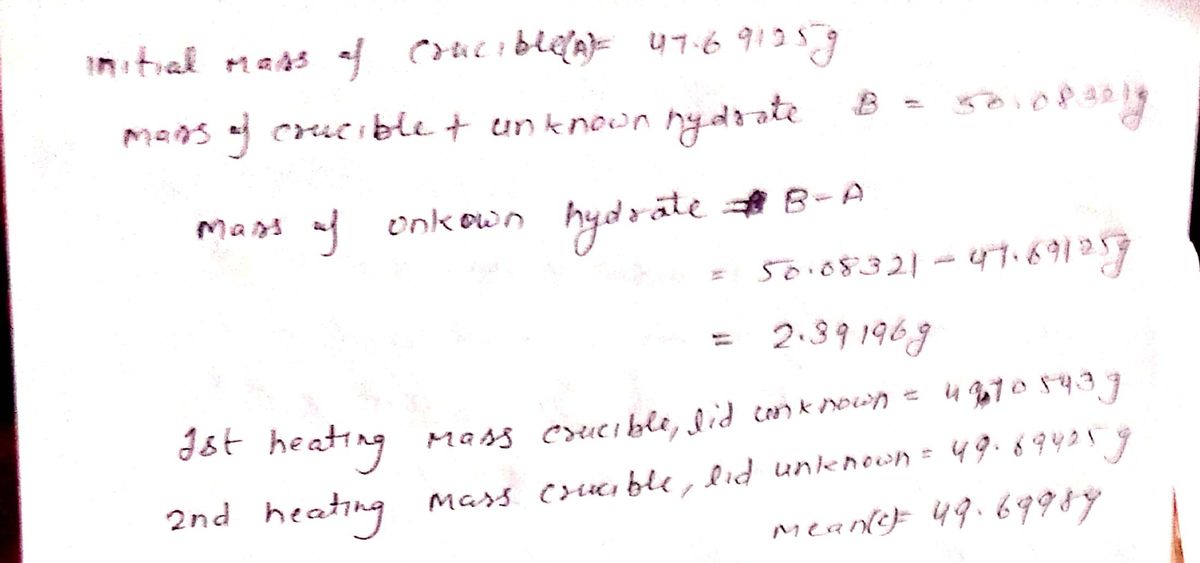 initial mass of crucible(A)= 47.69125g
mass of crucible + unknown hydrate B = 50.08321g
mass of onkown hydrate = B-A
= 50.08321 - 47.69125g
= 2.39196g
1st heating mass crucible, lid unknown = 49.70543g
2nd heating mass crucible, lid unknown = 49.69425g
mean(c)= 49.6998g